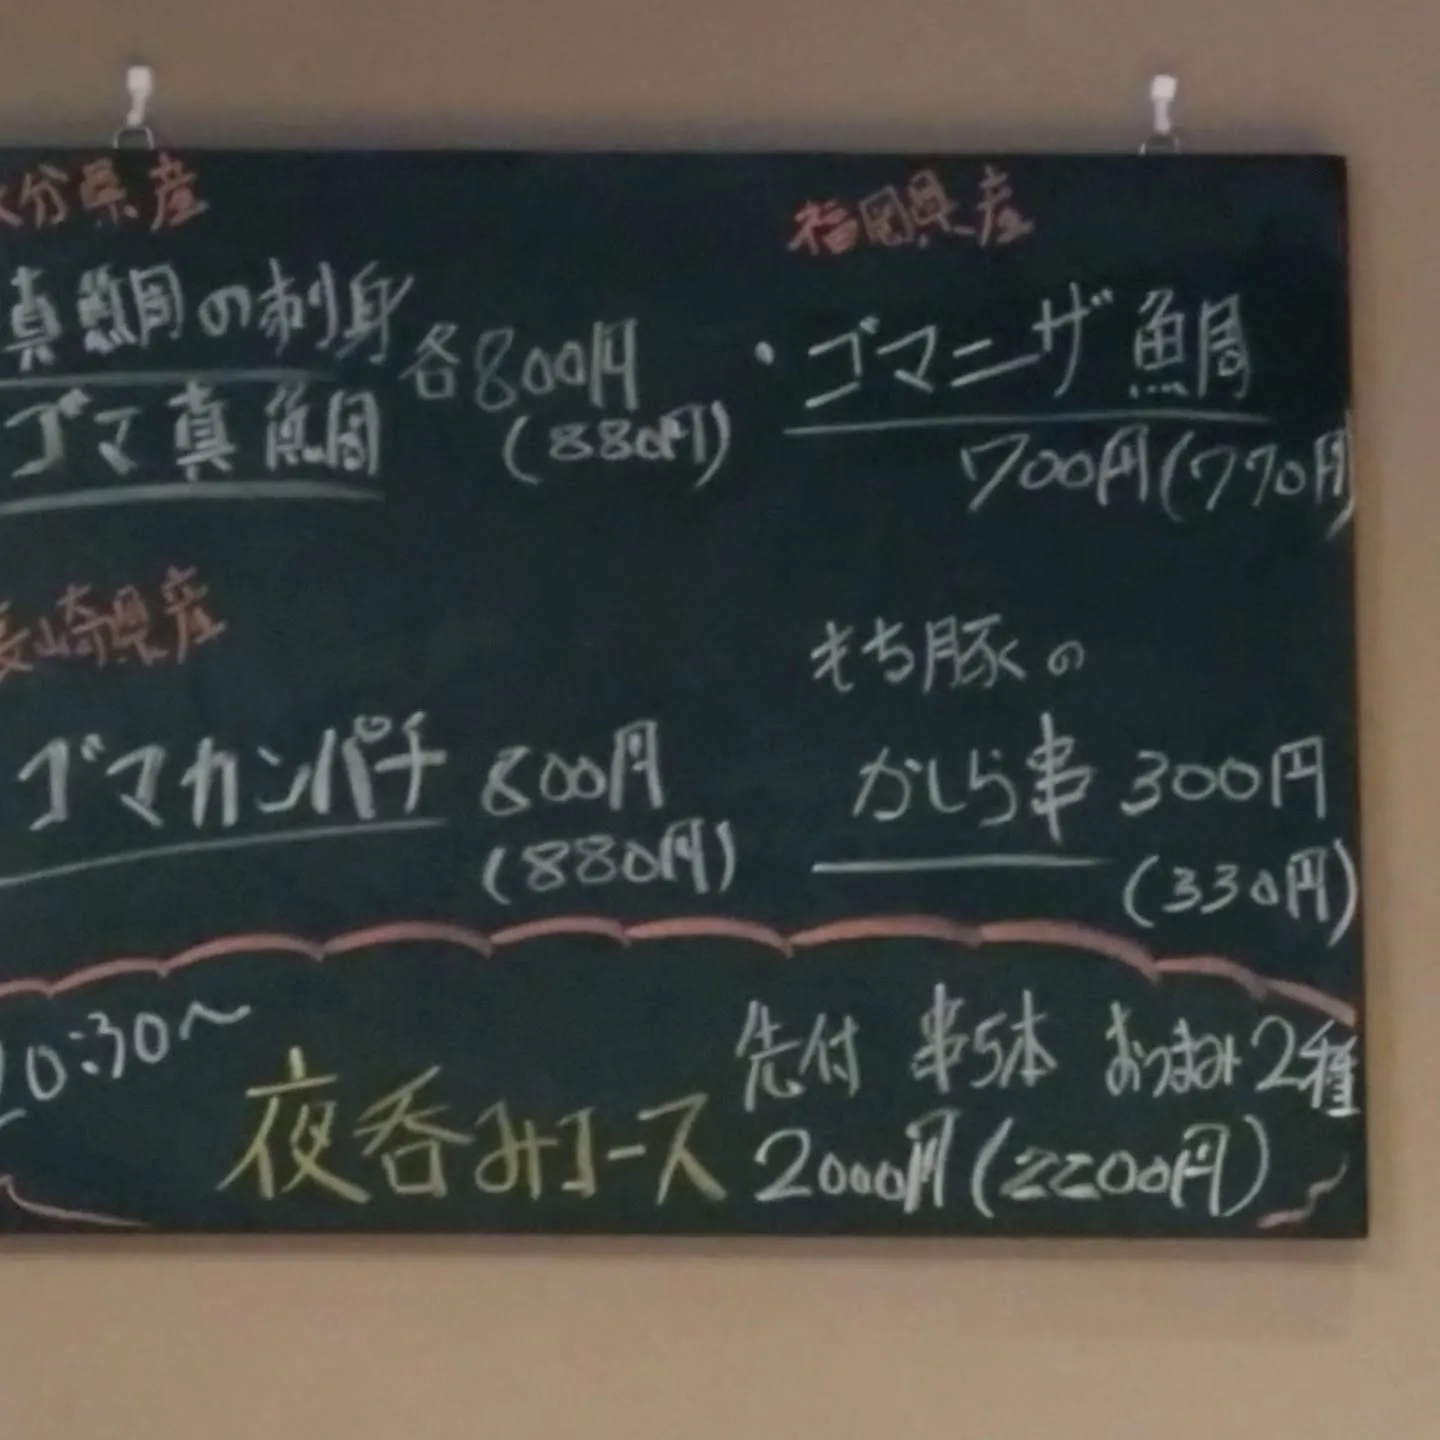 大分県産
真鯛の刺身
ゴマ真鯛
各800円
(880円)
福岡県産
・ゴマニザ鯛
700円(770円)
長崎県産
ゴマカンパチ 800円
(880円)
もち豚の
かしら串 300円
(330円)
0:30〜
夜呑みコース
先付 串5本 おつまみ2種
2000円(2200円)